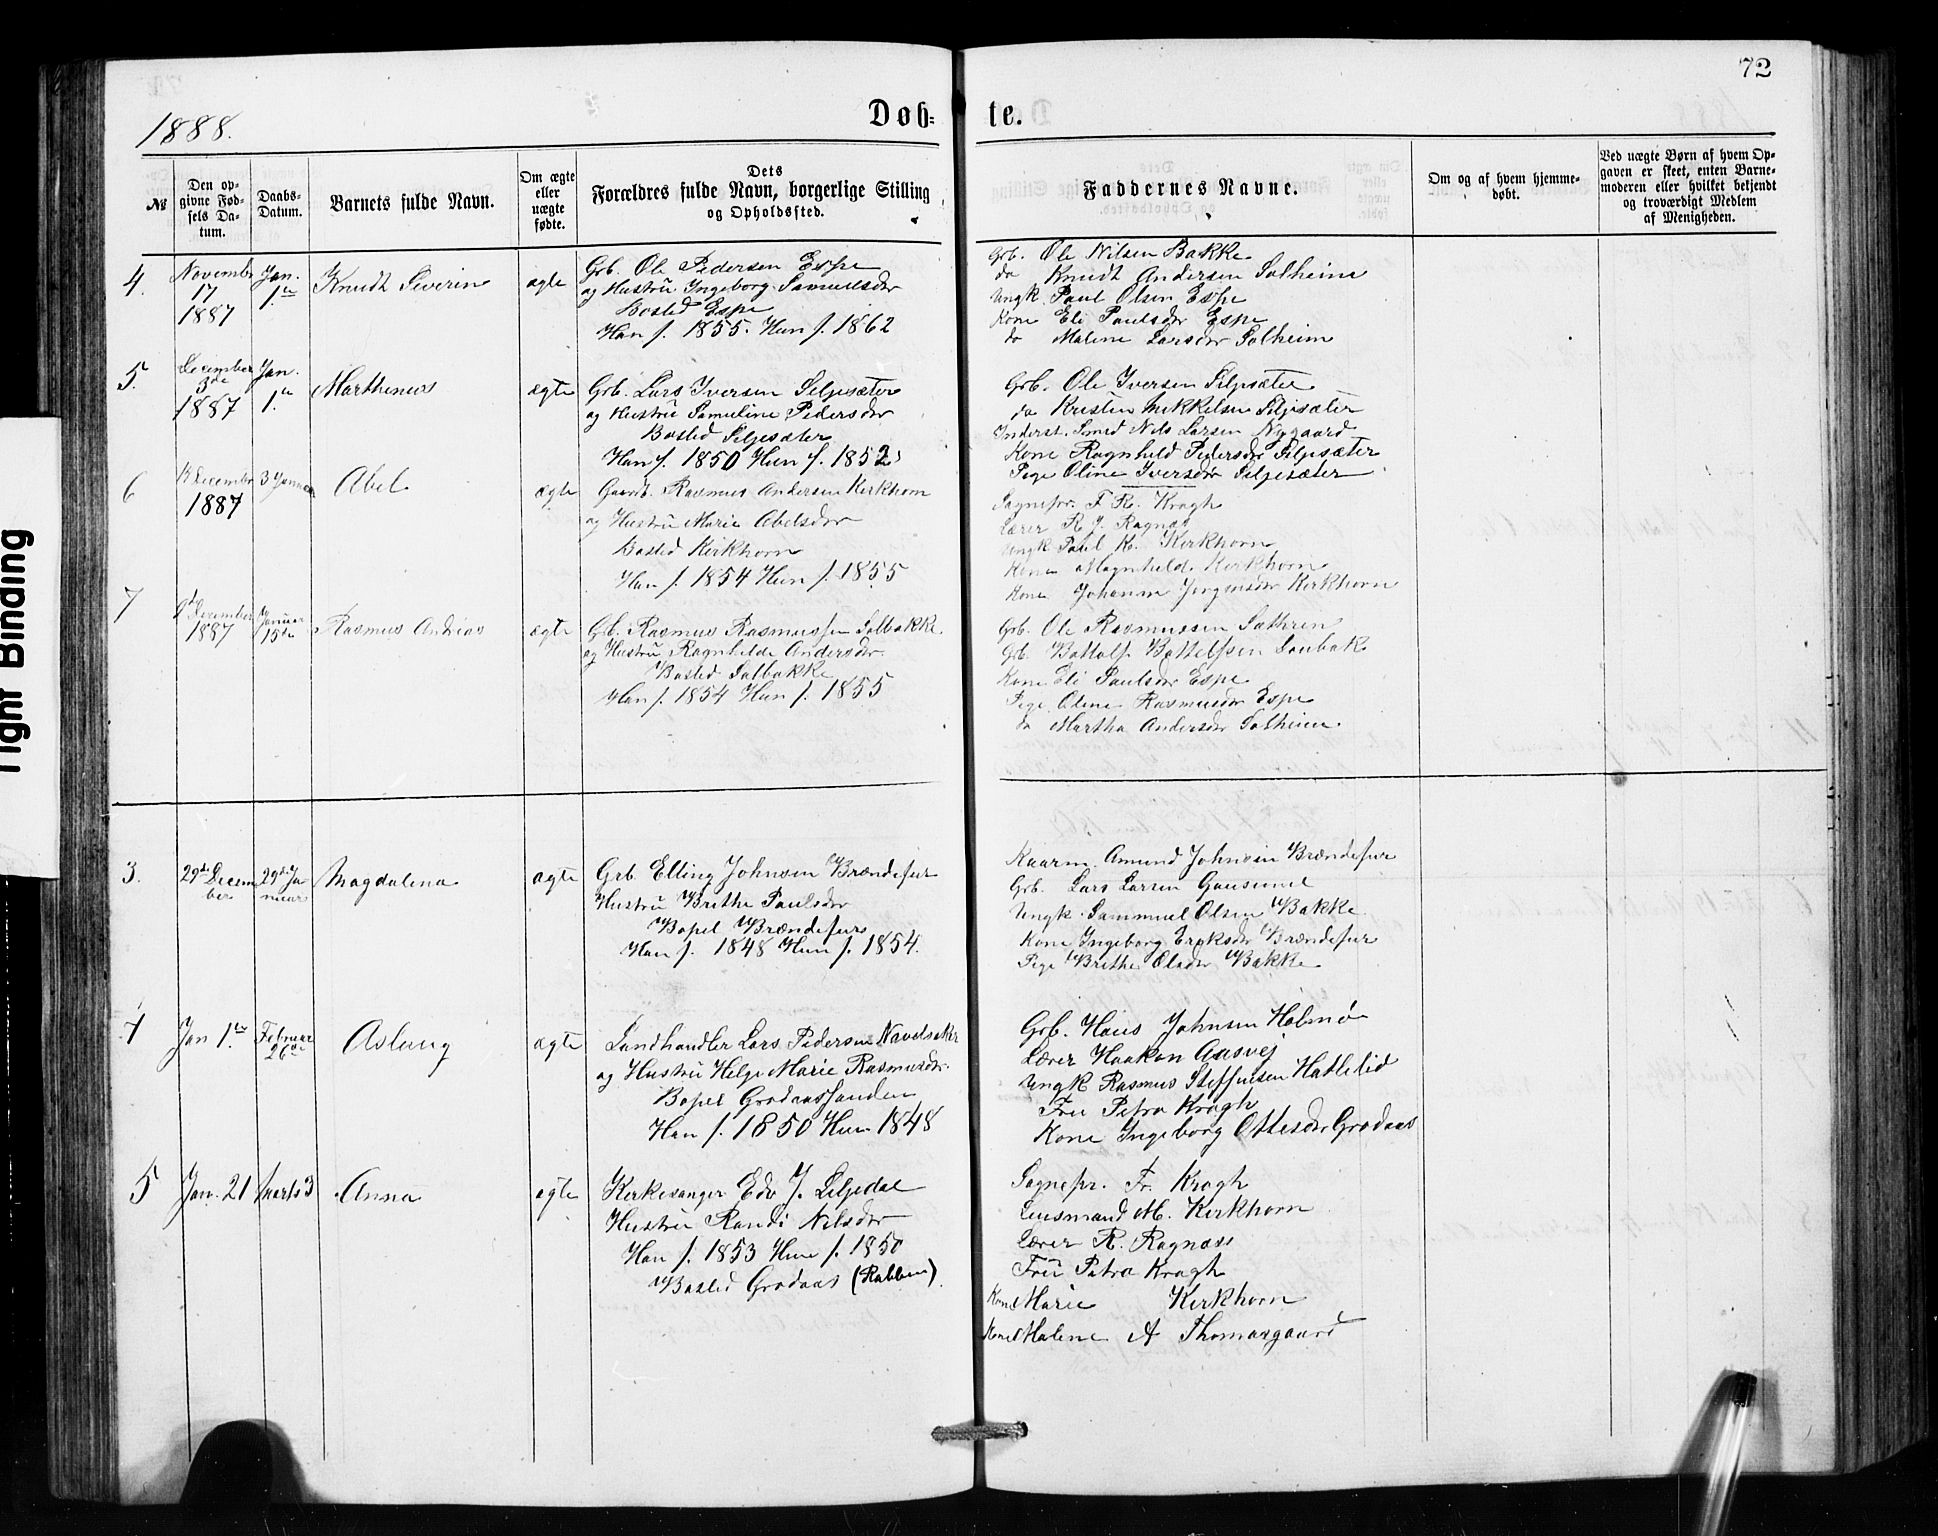 72
1888.
Døb- te.
№
Den opgivne Fødsels Datum.
Daabs-Datum.
Barnets fulde Navn.
Om ægte eller uægte fødte.
Dets Forældres fulde Navn, borgerlige Stilling og Opholdssted.
Faddernes Navne.
Om og af hvem hjemmedøbt.
Ved uægte Børn af hvem Opgaven er skeet, enten Barnemoderen eller hvilket betjendt og troværdigt Medlem af Menigheden.
4. November 17 1887 Jan. 1ste Knudt Severin ægte
Grb. Ole Pedersen Espe
og Hustru Ingeborg Samuelsdr
Bosted Espe
Han f. 1855. Hun f. 1862
Grb. Ole Nilsen Bakke
do Knudt Andersen Solheim
Ungk. Paul Olsen Espe
Kone Eli Paulsdr Espe
do Malene Larsdr Solheim
5. December 3de 1887 Jan. 1ste Marthinus ægte
Grb. Lars Iversen Seljesæter
og Hustru Samuline Pedersdr
Bosted Seljesæter
Han f. 1850 Hun f. 1852
Grb. Ole Iversen Seljesæter
do Kristen Mikkelsen Seljesæter
Inderst. Smed Nils Larsen Nygaard
Kone Ragnhild Pedersdr Seljesæter
Pige Oline Iversdr Seljesæter
6 December 1887 3 Januar Abel ægte
Gaardb. Rasmus Andersen Kirkhorn
og Hustru Marie Abelsdr
Bosted Kirkhorn
Han f. 1854 Hun f. 1855
Sognepr. F R. Kragh
Lærer R J. Ragnæs
Ungk Paul K. Kirkhorn
Kone Magnhild Kirkhorn
Kone Johanne Jørgensdr Kirkhorn
7 December 1887 Januar 15de Rasmus Andreas ægte
Gb. Rasmus Rasmussen Solbakke
og Hustru Ragnhilde Andersdr
Bosted Solbakke
Han f. 1854 Hun f. 1855
Grb. Ole Rasmussen Sathren
Gb. Bottolf Bottolfsen Loubak
Kone Eli Paulsdr Espe
Pige Oline Rasmusdr Espe
do Martha Andersdr Solheim
3. 29de December 29de Januar Magdalena ægte
Grb Elling Johnsen Brændefur
Hustru Brithe Paulsdr
Bopel Brændefur
Han f. 1848 Hun f. 1854.
Kaarm. Amund Johnsen Brændefur
Grb. Lars Larsen Gausemel
Ungk. Sammuel Olsen Bakke
Kone Ingeborg Eriksdr Brændefur
Pige Brithe Olsdr Bakke
4 Jan 1ste Februar 26de Aslaug ægte
Landhandler Lars Pedersen Navelsaker
og Hustru Helge Marie Rasmusdr.
Bopel Grodaassanden
Han f. 1850 Hun 1848
Grb. Hans Johnsen Holmø
Lærer Haakon Aasvej
Ungk Rasmus Steffensen Hatlelid
Fru Petra Kragh
Kone Ingeborg Ottesdr Grodaas
5 Jan. 21 Marts 3 Anna ægte
Kirkesanger Edv J. Liljedal
Hustru Randi Nilsdr
Han f. 1853 Hun f. 1850
Bosted Grodaas (Rabben).
Sognepr. Fr. Kragh
Lensmand M. Kirkhorn
Lærer R. Ragnæs
Fru Petra Kragh
Kone Marie Kirkhorn
Kone Malene A Thomasgaard
Tight Binding